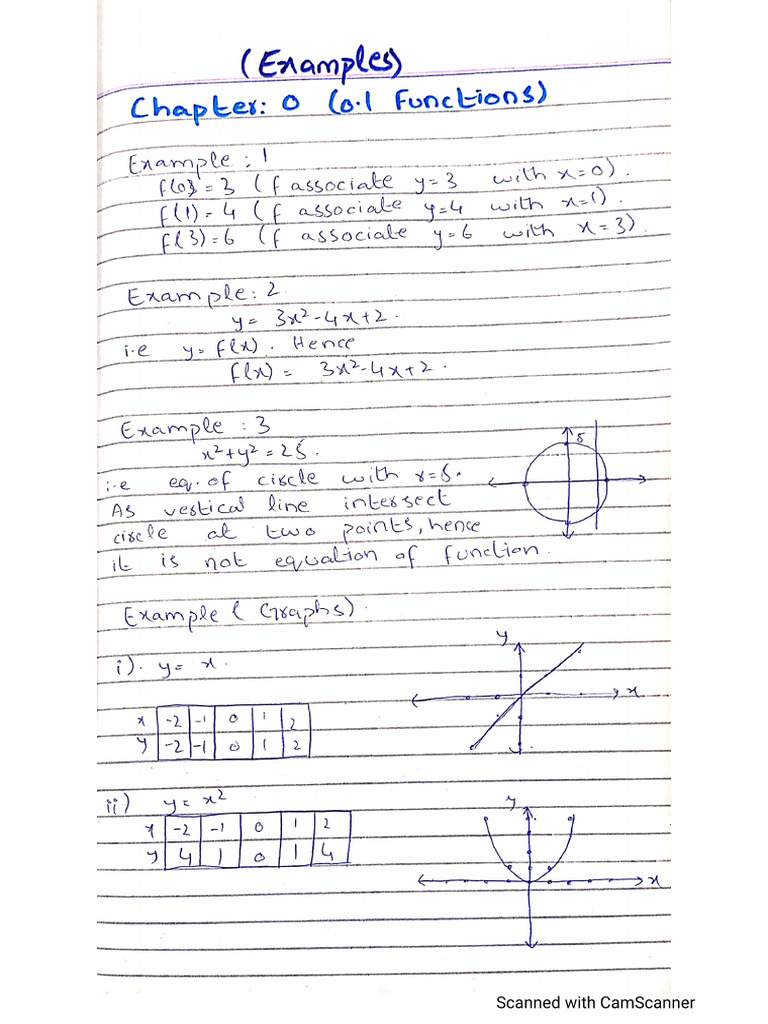 (Examples)
Chapter: 0 (0.1 Functions)
Example : 1
f(0) = 3 (f associate y=3 with x=0).
f(1) = 4 (f associate y=4 with x=1).
f(3) = 6 (f associate y=6 with x=3).
Example: 2
y = 3x²-4x+2.
i.e y= f(x). Hence
f(x) = 3x²-4x+2.
Example : 3
x²+y²=25.
i.e eq. of circle with r=5.
As vertical line intersect
circle at two points, hence
it is not equation of function.
5
Example (Graphs).
i). y= x.
x -2 -1 0 1 2
y -2 -1 0 1 2
y
x
ii) y= x²
x -2 -1 0 1 2
y 4 1 0 1 4
y
x
Scanned with CamScanner